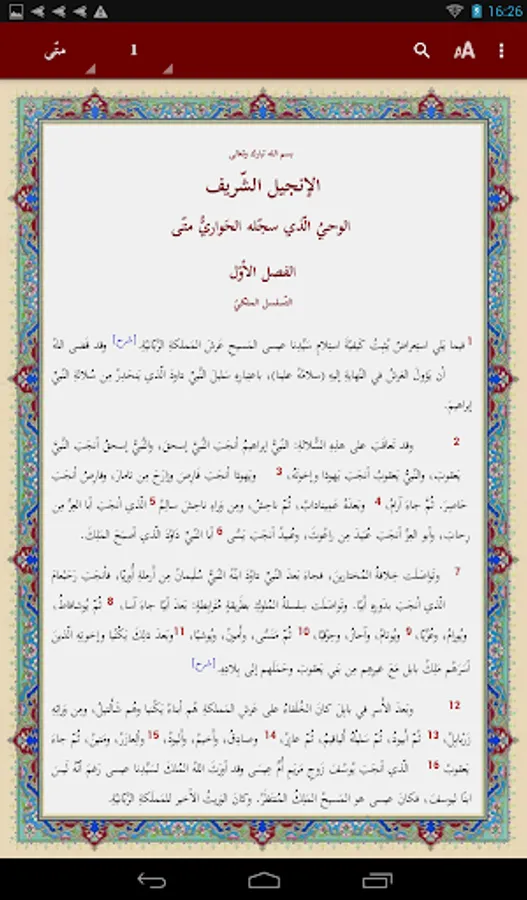 16:26
متّى 1
بسم الله تبارك وتعالى
الإنجيل الشّريف
الوحيُ الّذي سجّله الحَواريُّ متّى
الفصل الأوّل
التّسلسل الملكيّ
1 فيما يَلي استِعراضٌ يُثبِتُ كَيفيّةَ استِلامِ سَيِّدِنا عيسى المَسيحِ عَرشَ المَملكةِ الرَّبّانيّةِ.[شرح] وقد قَضى اللهُ
أن يَؤولَ العَرشُ في النِّهايةِ إليهِ (سلامُهُ علينا)، باعتِبارِهِ سَليلَ النَّبيِّ داوُدَ الّذي يَنحَدِرُ مِن سُلالةِ النَّبيِّ
إبراهيمَ.
2 وقد تَعاقَبَ على هذِهِ السُّلالةِ: النَّبيُّ إبراهيمُ أنجَبَ النَّبيَّ إسحقَ، والنَّبيُّ إسحقُ أنجَبَ النَّبيَّ
يَعقوبَ، والنَّبيُّ يَعقوبُ أنجَبَ يَهوذا وإخوَتَهُ، 3 ويَهوذا أنجَبَ فارَصَ وزارَحَ مِن تامارَ، وفارصُ أنجَبَ
حَاصِرَ. ثُمَّ جاءَ آرامُ، 4 وبَعدَهُ عَميناداب، ثُمَّ ناحِشُ، ومِن وَراءِ ناحِشَ سالِمُ 5 الّذي أنجَبَ أبا العِزِّ مِن
رِحابَ، وأبو العِزِّ أنجَبَ عُبَيدَ مِن راعُوثَ، وعُبيدُ أنجَبَ يَسّى 6 أبا النَّبيِّ داوُدَ الّذي أصبَحَ المَلِكَ.
7 وتَواصَلَت خِلافةُ المُختارينَ، فجاءَ بَعدَ النَّبيِّ داوُدَ ابنُهُ النَّبيُّ سُليمانُ مِن أرملةِ أُوريّا، فأنجَبَ رَحْبَعامَ
الّذي أنجَبَ بدَورِهِ أبيّا. وتَواصَلَت سِلسلةُ المُلوكِ بطَريقةٍ مُتَرابِطةٍ: بَعدَ أبيّا جاءَ آسا، 8 ثُمَّ يُوشافاطُ،
ويُورامُ، وعُزّيّا، 9 ويُوتامُ، وآحازُ، وحِزقيّا، 10 ثُمَّ مَنَسّى، وأَمونُ، ويُوشيّا، 11 وبَعدَ ذلِكَ يَكُنْيا وإخوتِهِ الّذينَ
أسَرَهُم مَلِكُ بابِل مَعَ غَيرِهِم مِن بَني يَعقوبَ وحَمَلَهُم إلى بِلادِهِ.[شرح]
12 وبَعدَ الأَسرِ في بابِلَ كانَ الخُلَفاءُ على عَرشِ المَملكةِ هُم أبناءُ يَكُنْيا وهُم شَألتيلُ، ومِن وَرائِهِ
زَرُبابِلُ، 13 ثُمَّ أبيودُ، ثُمَّ سَليلُهُ ألياقيمُ، ثُمَّ عازِرُ، 14 وصادِقُ، وأخيمُ، وأليودُ، 15 وأليعازَرُ، ومَتينُ، ثُمَّ جاءَ
يَعقوبُ 16 الّذي أنجَبَ يُوسُفَ زَوجَ مَريَمَ أُمِّ عِيسى وقد أورَثَ اللهُ المُلكَ لسَيِّدِنا عيسى رَغمَ أنّهُ لَيسَ
ابنًا ليوسفَ، فكانَ عيسى هو المَسيحُ المَلِكُ المُنتَظَرُ. وكانَ الوَريثَ الأخيرَ للمَملكةِ الرَّبّانيّةِ.